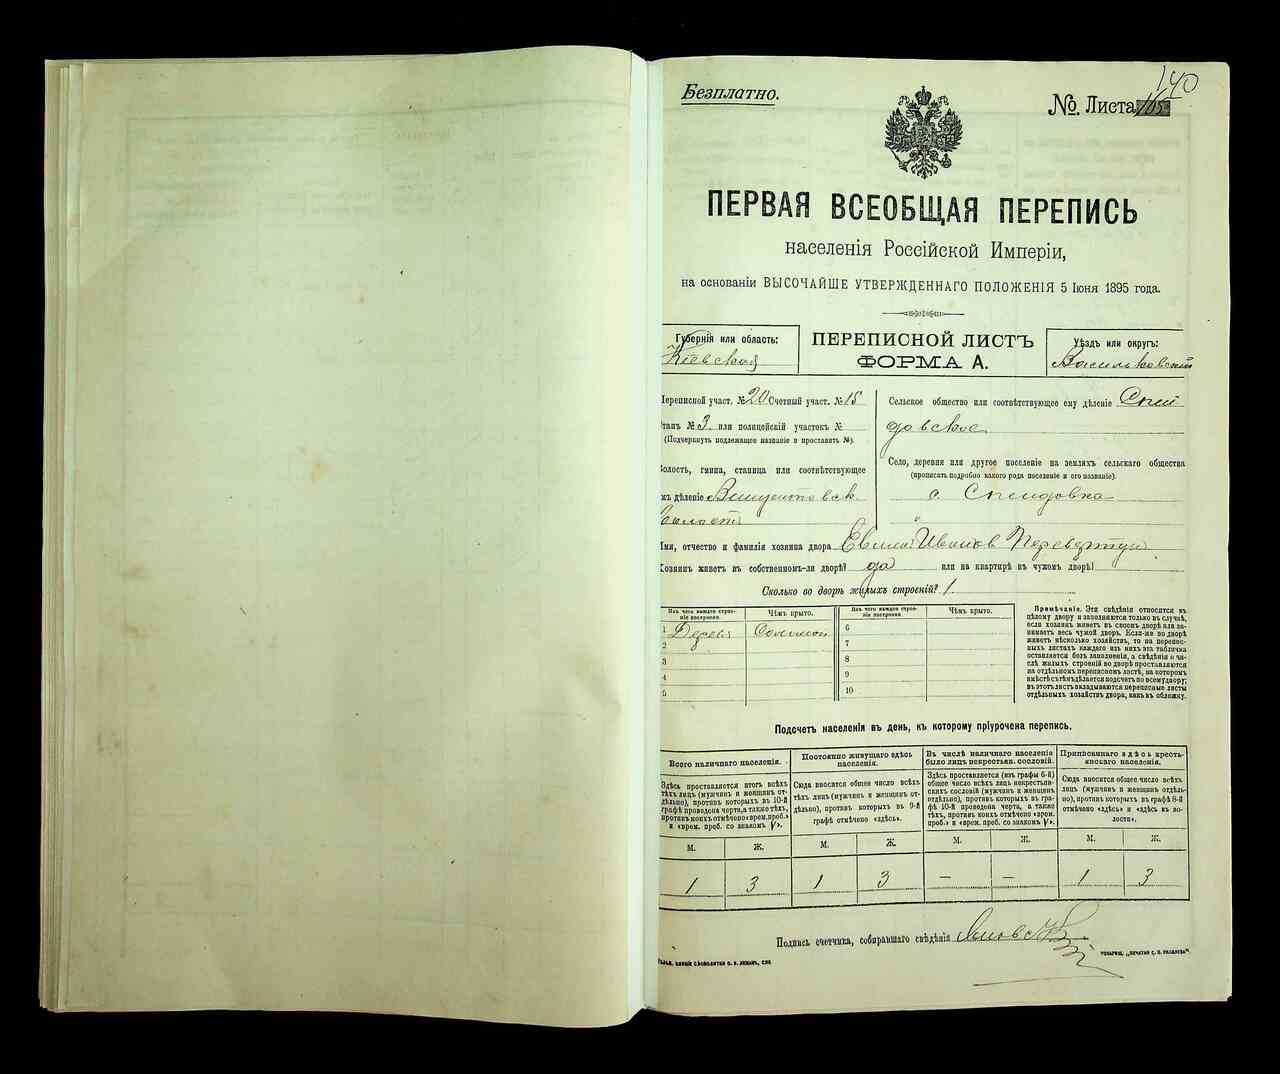 Безплатно.
140
№ Листа 165
ПЕРВАЯ ВСЕОБЩАЯ ПЕРЕПИСЬ
населенія Россійской Имперіи,
на основаніи ВЫСОЧАЙШЕ УТВЕРЖДЕННАГО ПОЛОЖЕНІЯ 5 Іюня 1895 года.
Губернія или область:
Кіевская
ПЕРЕПИСНОЙ ЛИСТЪ
ФОРМА А.
Уѣздъ или округъ:
Васильковскій
Переписной участ. № 20 Счетный участ. № 15
Станъ № 3. или полицейскій участокъ №
(Подчеркнуть подлежащее названіе и проставить №).
Волость, гмина, станица или соотвѣтствующее
имъ дѣленіе
Волость
Сельское общество или соотвѣтствующее ему дѣленіе
довское
Село, деревня или другое поселеніе на земляхъ сельскаго общества
(прописать подробно какого рода поселеніе и его названіе).
с.
Имя, отчество и фамилія хозяина двора Иванов
Хозяинъ живетъ въ собственномъ-ли дворѣ? да или на квартирѣ въ чужомъ дворѣ?
Сколько во дворѣ жилыхъ строеній? 1.
Изъ чего каждое строеніе построено.
Чѣмъ крыто.
Изъ чего каждое строеніе построено.
Чѣмъ крыто.
1 Дерева Соломой
2
3
4
5
6
7
8
9
10
Примѣчаніе. Эти свѣдѣнія относятся къ
цѣлому двору и заполняются только въ случаѣ,
если хозяинъ живетъ въ своемъ дворѣ или занимаетъ весь чужой дворъ. Если-же во дворѣ
живетъ нѣсколько хозяйствъ, то на переписныхъ листахъ каждаго изъ нихъ эта табличка
оставляется безъ заполненія, а свѣдѣнія о числѣ жилыхъ строеній во дворѣ проставляются
на отдѣльномъ переписномъ листѣ, на которомъ
вмѣстѣ съ тѣмъ дѣлается подсчетъ по всему двору;
въ этотъ листъ вкладываются переписные листы
отдѣльныхъ хозяйствъ двора, какъ въ обложку.
Подсчетъ населенія въ день, къ которому пріурочена перепись.
Всего наличнаго населенія.
Здѣсь проставляется итогъ всѣхъ
тѣхъ лицъ (мужчинъ и женщинъ отдѣльно), противъ которыхъ въ 10-й
графѣ проведена черта, а также тѣхъ,
противъ коихъ отмѣчено «врем. преб.»
и «врем. преб. со знакомъ V».
Постоянно живущаго здѣсь
населенія.
Сюда вносится общее число всѣхъ
тѣхъ лицъ (мужчинъ и женщинъ отдѣльно), противъ которыхъ въ 9-й
графѣ отмѣчено «здѣсь».
Въ числѣ наличнаго населенія
было лицъ некрестьян. сословій.
Здѣсь проставляется (изъ графы 6-й)
общее число всѣхъ лицъ некрестьянскихъ сословій (мужчинъ и женщинъ
отдѣльно), противъ которыхъ въ графѣ 10-й проведена черта, а также
тѣхъ, противъ коихъ отмѣчено «врем.
преб.» и «врем. преб. со знакомъ V».
Приписаннаго здѣсь крестьянскаго населенія.
Сюда вносится общее число всѣхъ
лицъ (мужчинъ и женщинъ отдѣльно), противъ которыхъ въ графѣ 8-й
отмѣчено «здѣсь» и «здѣсь въ волости».
М. Ж. М. Ж. М. Ж. М. Ж.
1 3 1 3 — — 1 3
Подпись счетчика, собиравшаго свѣдѣнія